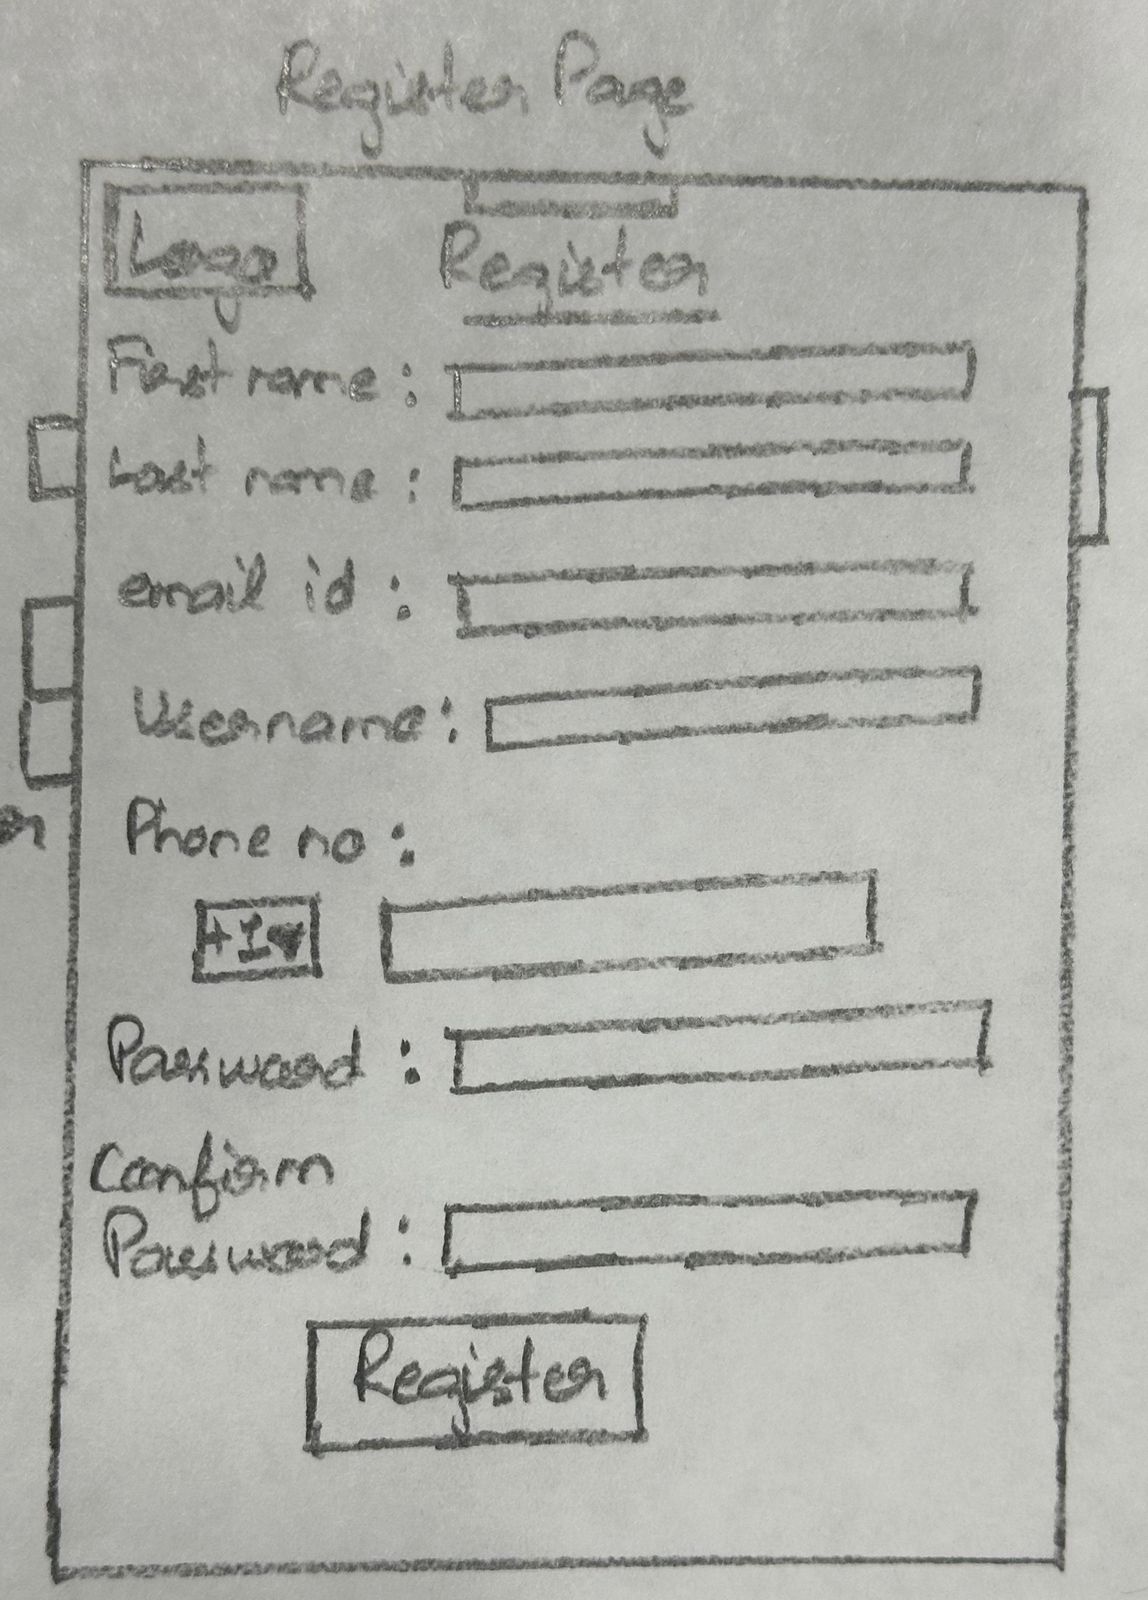 Register Page
Logo
Register
First name :
Last name :
email id :
Username :
Phone no :
+1
Password :
Confirm
Password :
Register